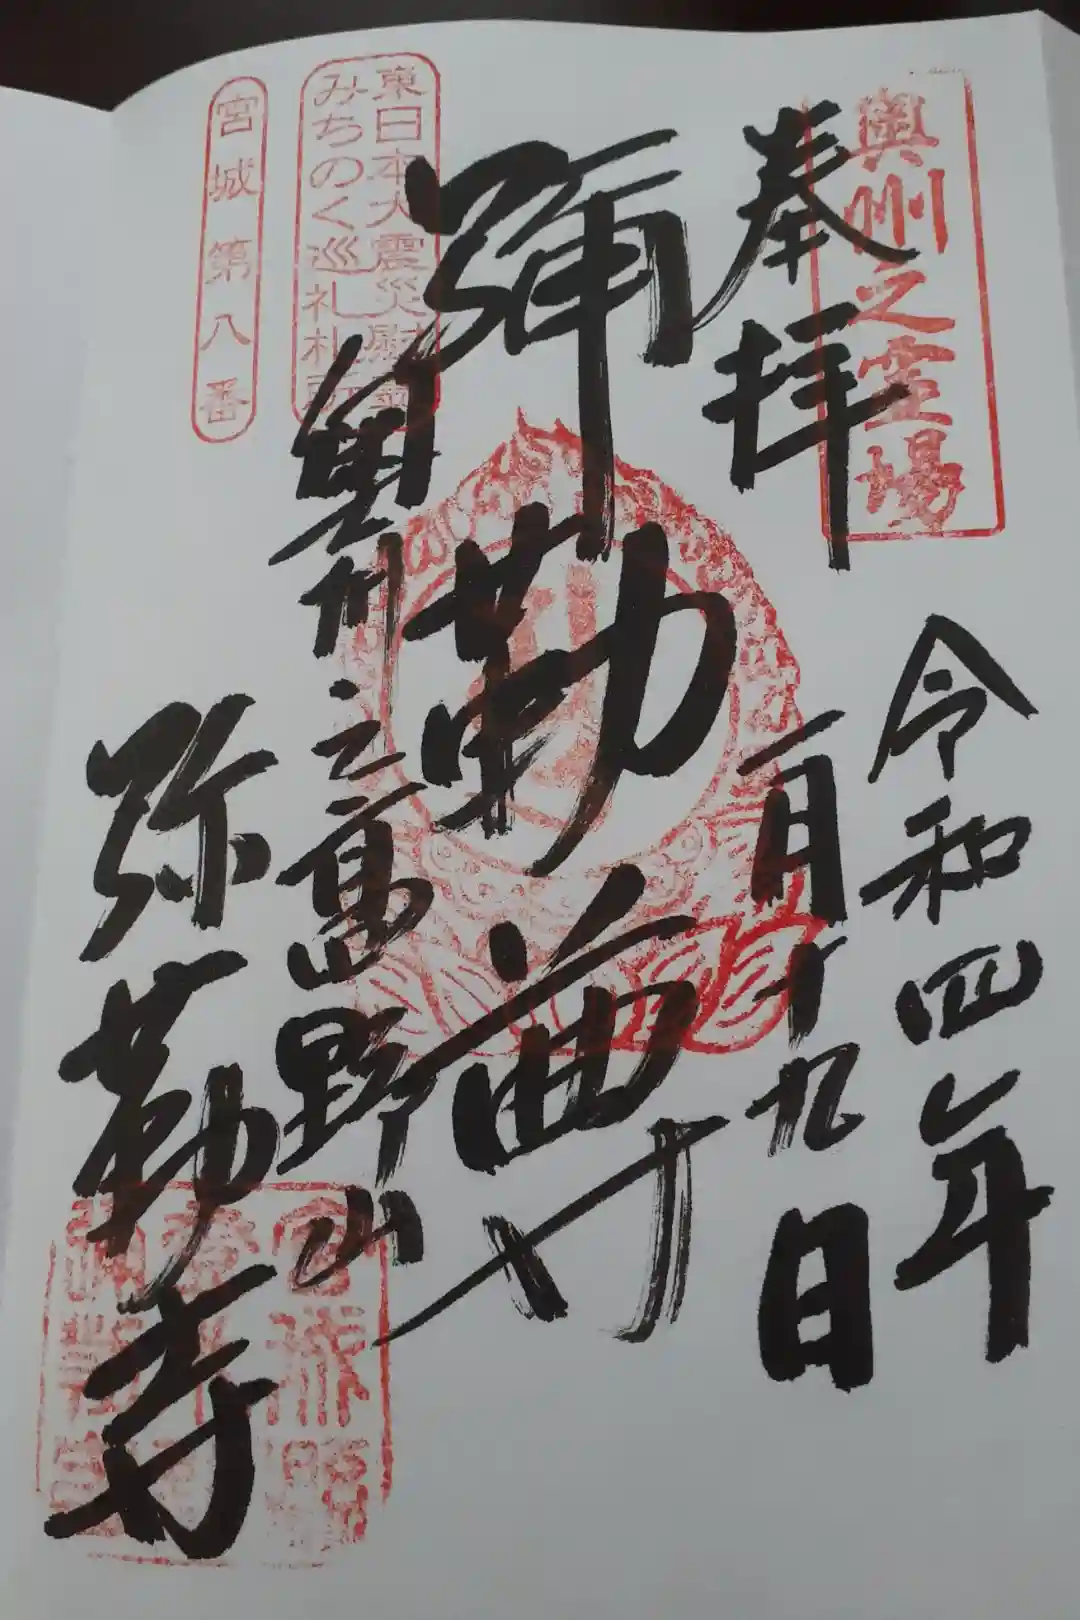 奥州之霊場
奉拝
令和四年
一月十九日
彌勒尊
東日本大震災慰霊
みちのく巡礼札所
奥州之高野山
宮城第八番
弥勒寺